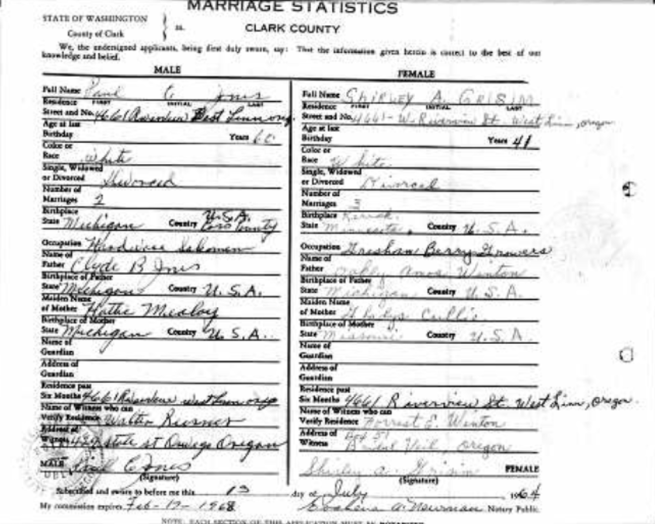 MARRIAGE STATISTICS
STATE OF WASHINGTON
County of Clark
ss.
CLARK COUNTY
We, the undersigned applicants, being first duly sworn, say: That the information given herein is correct to the best of our
knowledge and belief.
MALE
Full Name Paul C Jones
FIRST INITIAL LAST
Residence
Street and No. 4661 Riverview West Linn
Age at last
Birthday Years 60
Color or
Race White
Single, Widowed
or Divorced Divorced
Number of
Marriages 2
Birthplace U.S.A.
State Michigan Country Cass County
Occupation Hardware Salesman
Name of
Father Clyde B Jones
Birthplace of Father
State Michigan Country U.S.A.
Maiden Name
of Mother Hattie
Birthplace of Mother
State Michigan Country U.S.A.
Name of
Guardian
Address of
Guardian
Residence past
Six Months 4661 Riverview West Linn
Name of Witness who can
Verify Residence Walter
Address of
Witness State St Oswego Oregon
MALE Paul C Jones
(Signature)
FEMALE
Full Name SHIRLEY A. GRISIM
FIRST INITIAL LAST
Residence
Street and No. 4661 - W. Riverview St. West Linn, Oregon
Age at last
Birthday Years 41
Color or
Race White
Single, Widowed
or Divorced Divorced
Number of
Marriages
Birthplace
State Minnesota Country U.S.A.
Occupation Gresham Berry Growers
Name of
Father Amos Winton
Birthplace of Father
State Michigan Country U.S.A.
Maiden Name
of Mother Gladys
Birthplace of Mother
State Missouri Country U.S.A.
Name of
Guardian
Address of
Guardian
Residence past
Six Months 4661 Riverview St. West Linn, Oregon.
Name of Witness who can
Verify Residence Forrest E. Winton
Address of
Witness Bridal Veil, Oregon
Shirley A. Grisim FEMALE
(Signature)
Subscribed and sworn to before me this 13 day of July 1964
My commission expires Feb-17-1968 Newman Notary Public.
NOTE: EACH SECTION OF THIS APPLICATION MUST BE